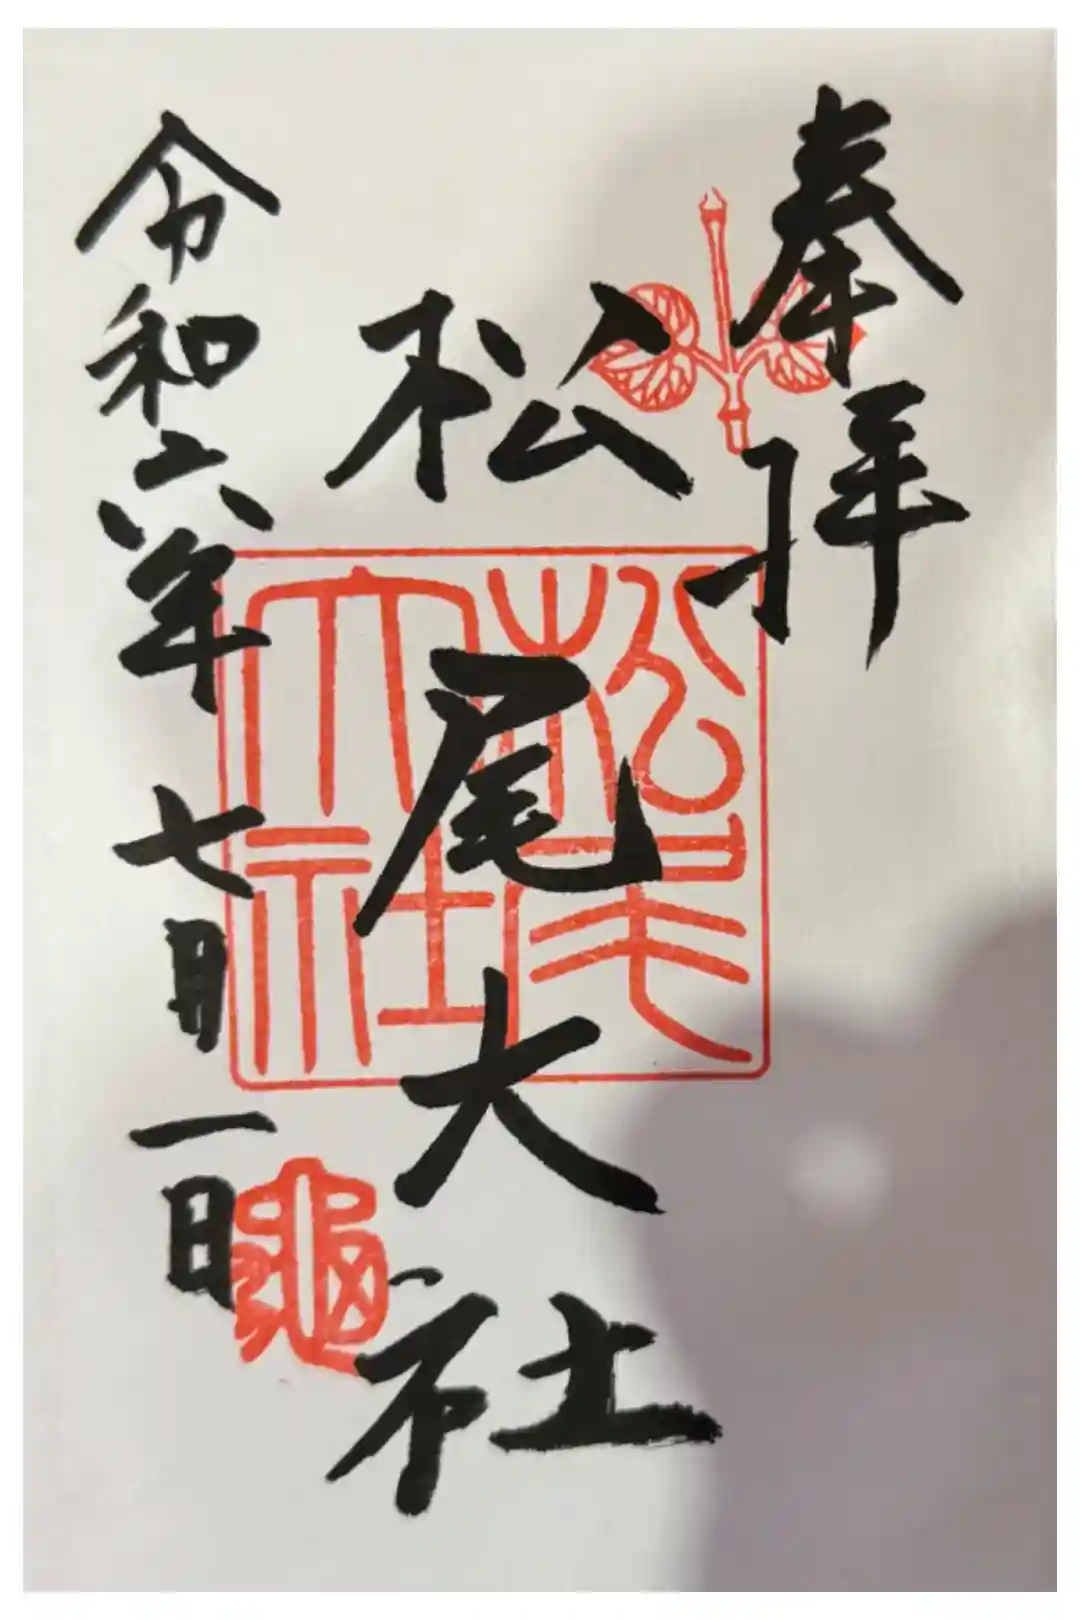 奉拝
松尾大社
松尾大社
令和六年七月一日
龜